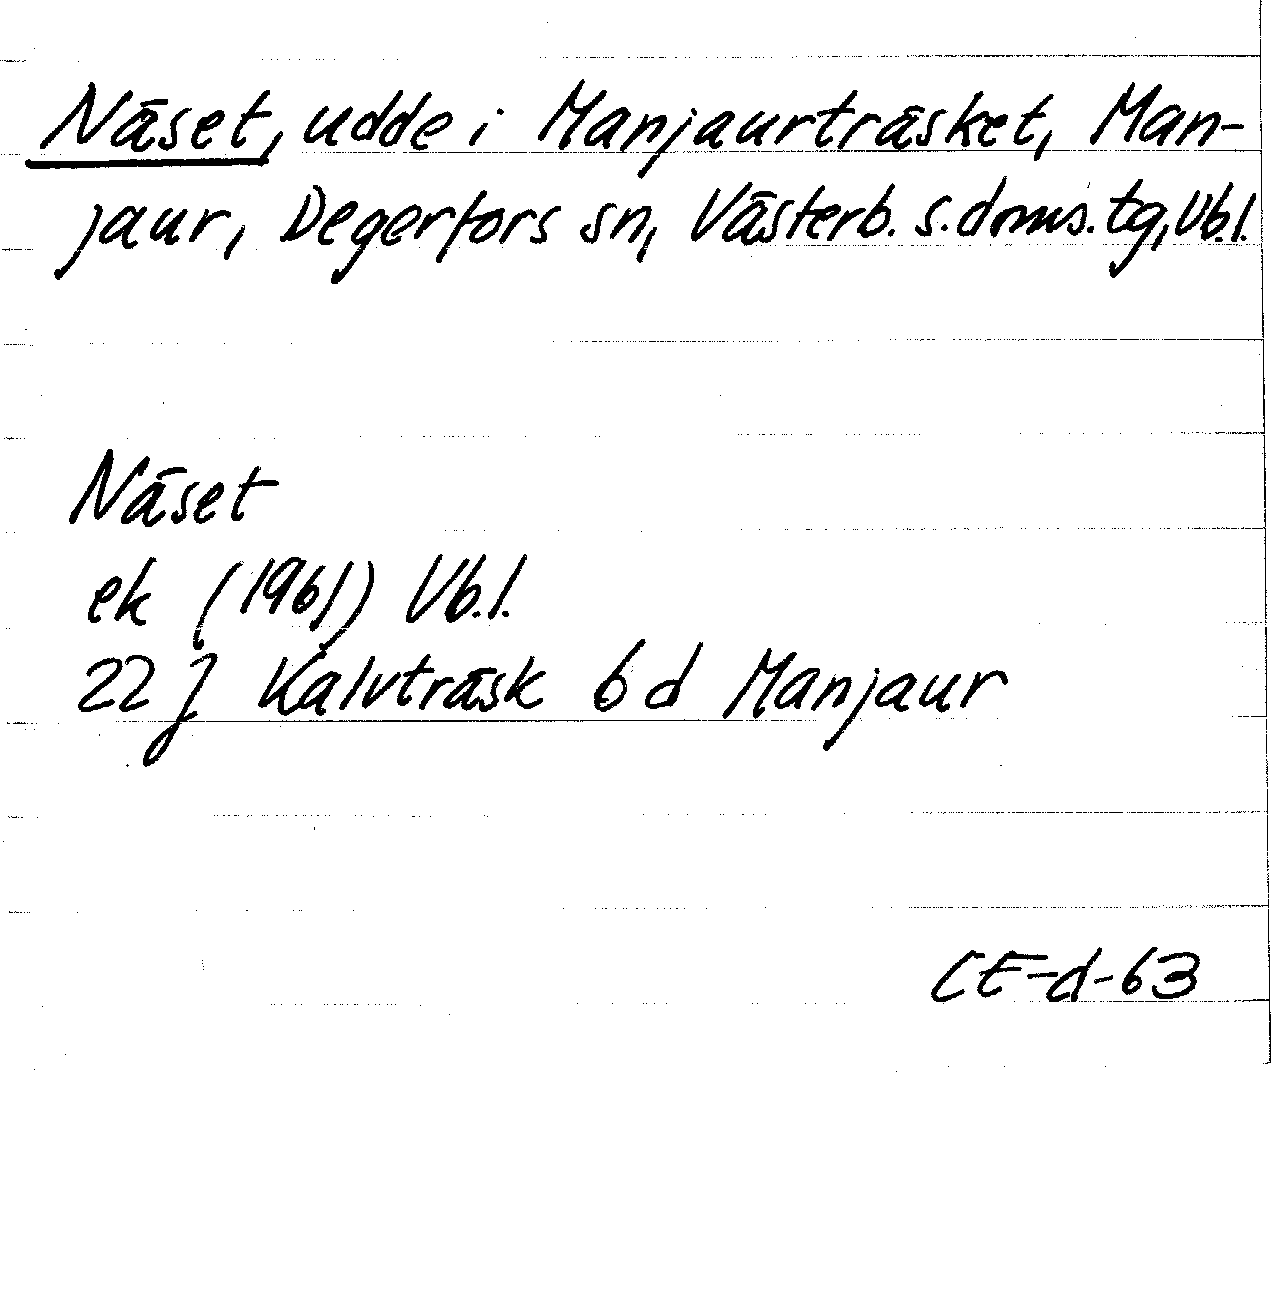 Näset, udde i Manjaurträsket, Man-
jaur, Degerfors sn, Västerb. s. dms. tg, Vb.l.
Näset
ek (1961) Vb.l.
22 J Kalvträsk 6 d Manjaur
CE-d-63